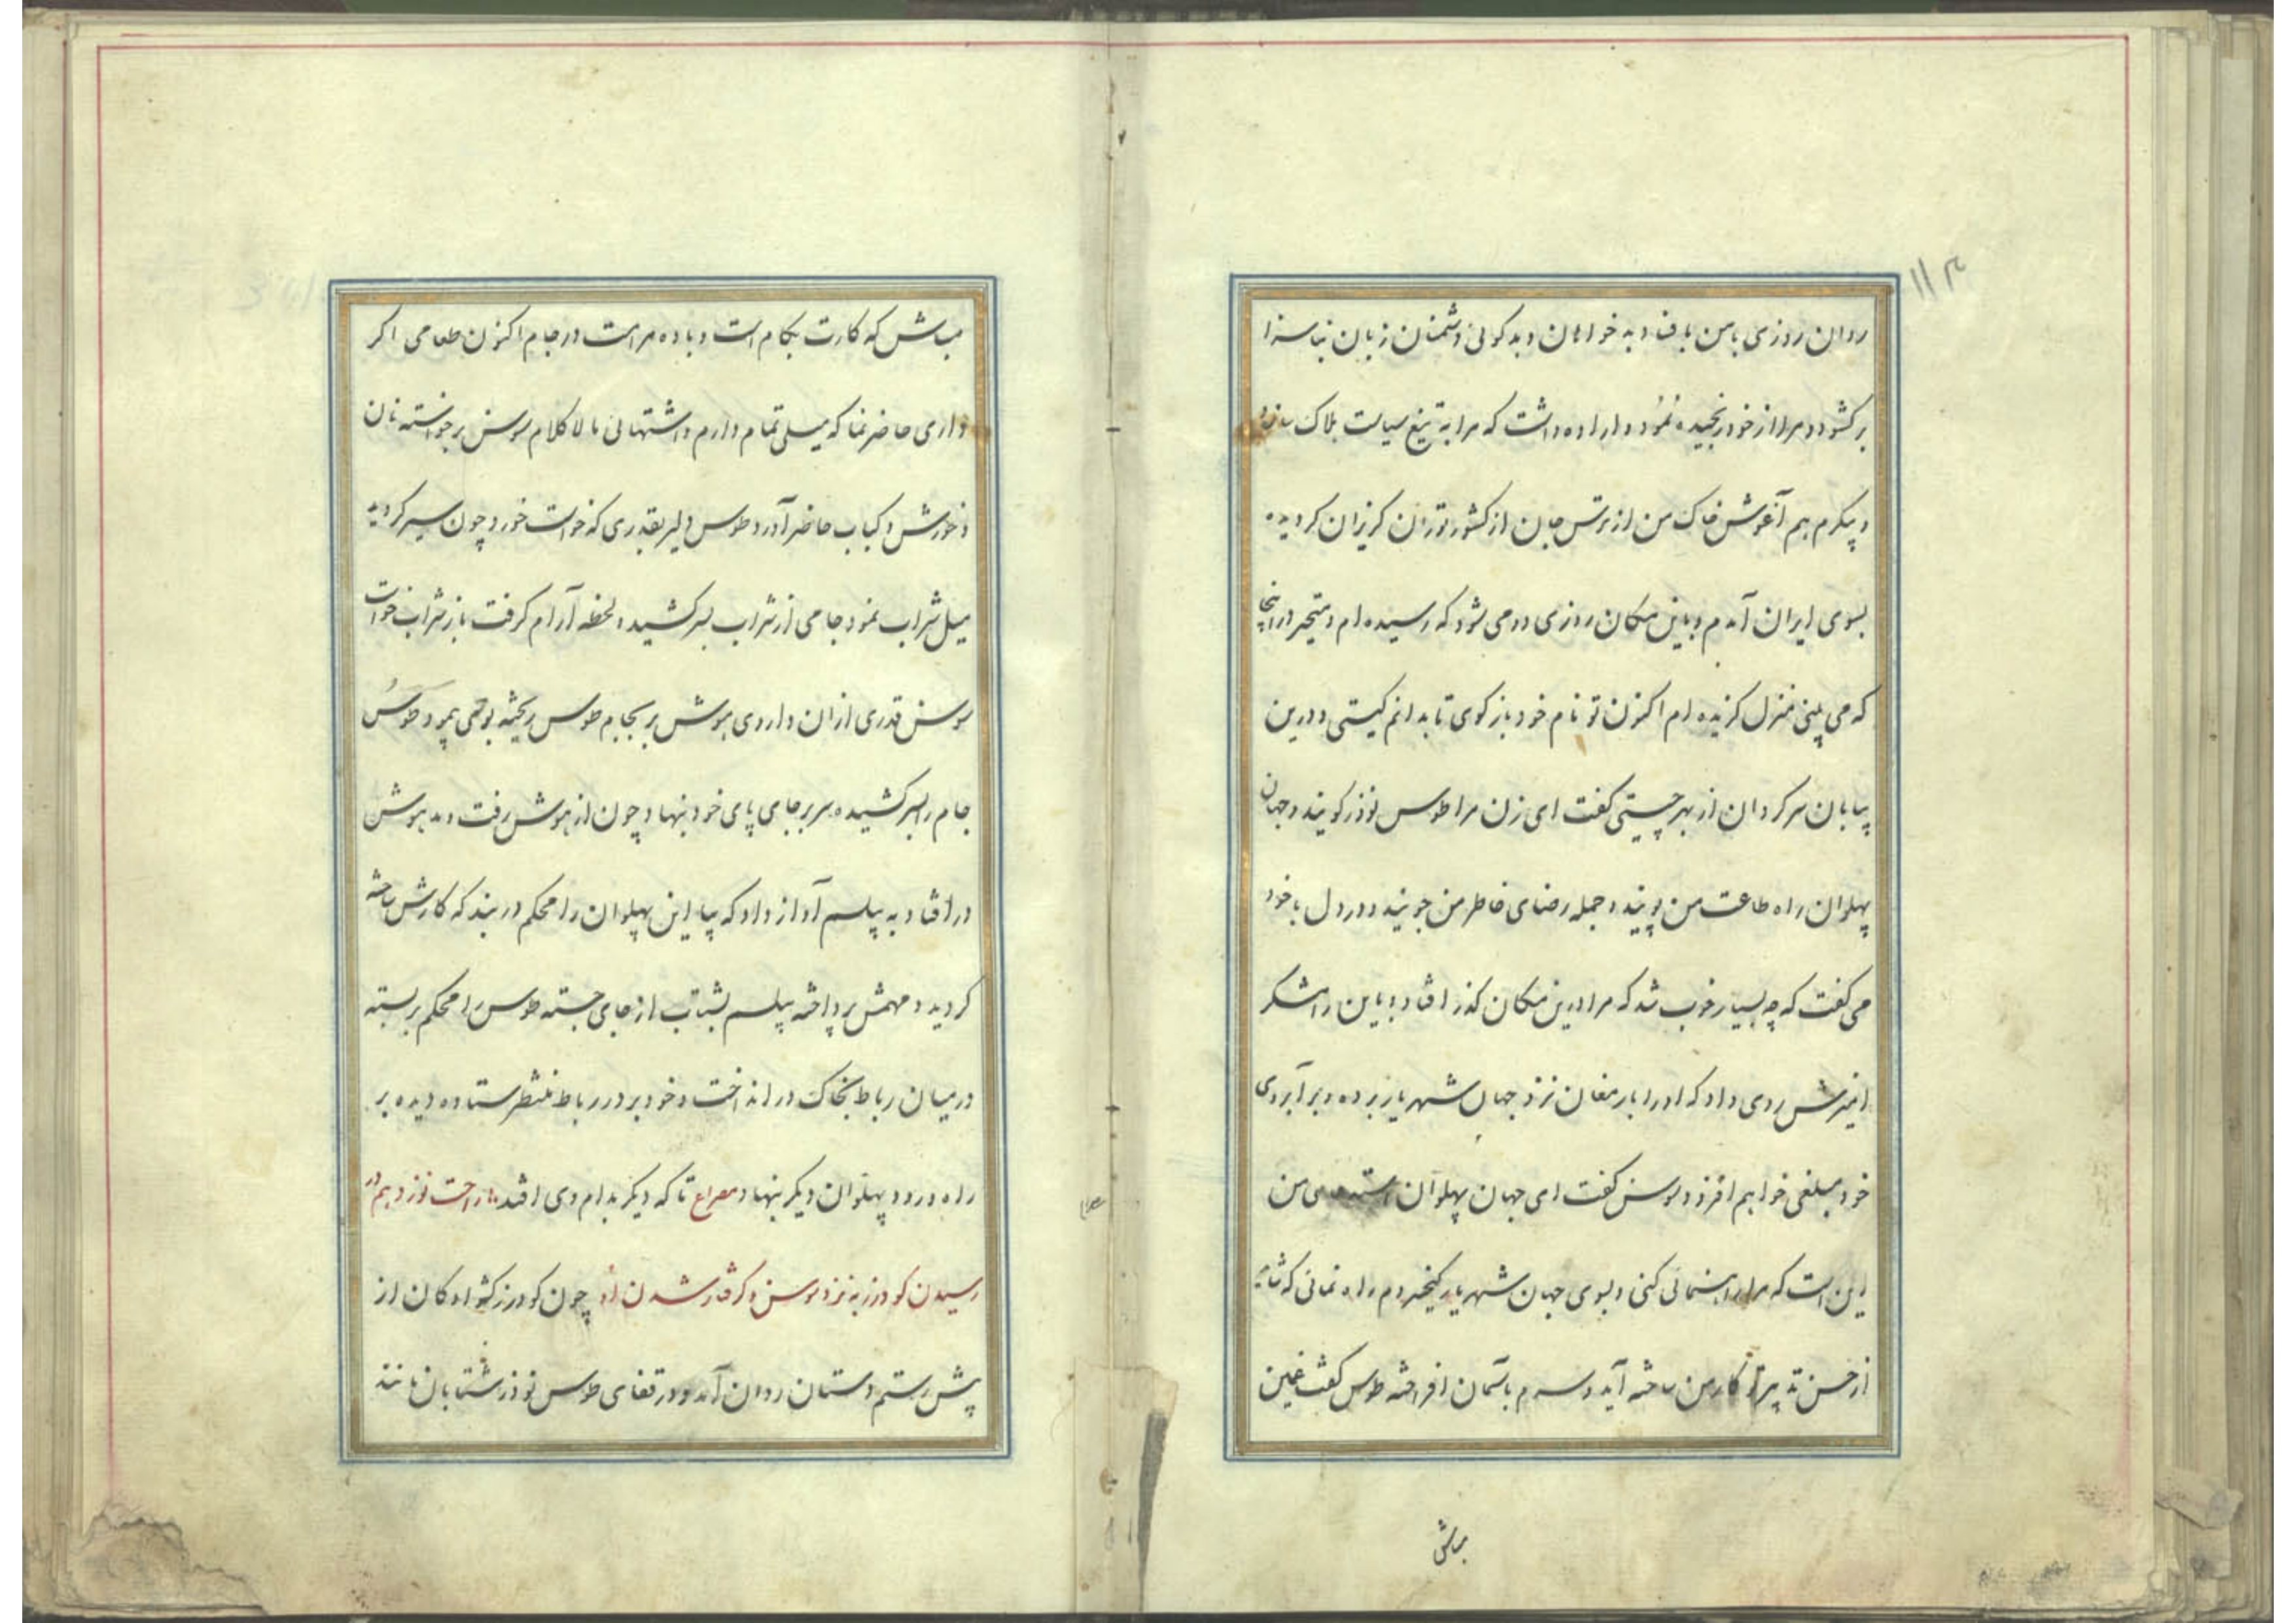 ۱۱۳
روان روزی با من بافتاد به خواهان و بدکوئی دشمنان زبان بناسزا
برکشود و مرا از خود رنجیده نمود و اراده داشت که مرا به تیغ سیاست هلاک سازد
و پیکرم هم آغوش خاک من از ترس جان از کشور توران کریزان کردیده
بسوی ایران آمدم و باین مکان روزی دو می شود که رسیده ام و متحیر در اینجا
که می بینی منزل کزیده ام اکنون تو نام خود باز کوی تا بدانم کیستی و درین
بیابان سرکردان از بهر چیستی کفت ای زن مرا طوس نوذر کویند و جهان
پهلوان راه طاعت من پویند و جمله رضای خاطر من جویند و در دل با خود
می کفت که چه بسیار خوب شد که مرا درین مکان کذر افتاد و با این رامشکر
امیزش روی داد که او را بارمغان نزد جهان شهریار برده و بر آبروی
خود مبلغی خواهم افزود سوسن کفت ای جهان پهلوان استدعای من
این است که مرا راهنمائی کنی و بسوی جهان شهریار کیخسروم راه نمائی که شاید
از حسن تدبیر تو کار من ساخته آید و سرم باسمان افراخته طوس کفت غمین
مباش
مباش که کارت بکام است و باده مراست در جام اکنون طعامی اکر
داری حاضر نما که میلی تمام دارم و اشتهائی مالا کلام سوسن برخواسته نان
و خورش و کباب حاضر آورد طوس دلیر بقدری که خواست خورد چون سیر کردید
میل شراب نمود جامی از شراب بسر کشید و لحظه آرام کرفت باز شراب خواست
سوسن قدری ازان داروی هوش بر بجام طوس ریخته بوی پیمود طوس
جام را بسر کشیده سر بر جای پای خود بنهاد چون از هوش رفت و مدهوش
در افتاد به پیلسم آواز داد که بیا این پهلوان را محکم در بند که کارش ساخته
کردید و مهمش پرداخته پیلسم بشتاب از جای جسته طوس را محکم بر بسته
در میان رباط بخاک در انداخت و خود بر در رباط منتظر ستاده دیده بر
راه ورود پهلوان دیکر بنهاد مصراع تا که دیکر بدام وی افتد راحت نوزدهم در
رسیدن کودرز به نزد سوسن و کرفتار شدن او چون کودرز کشوادکان از
پیش رستم دستان روان آمد و در قفای طوس نوذر شتابان مانند